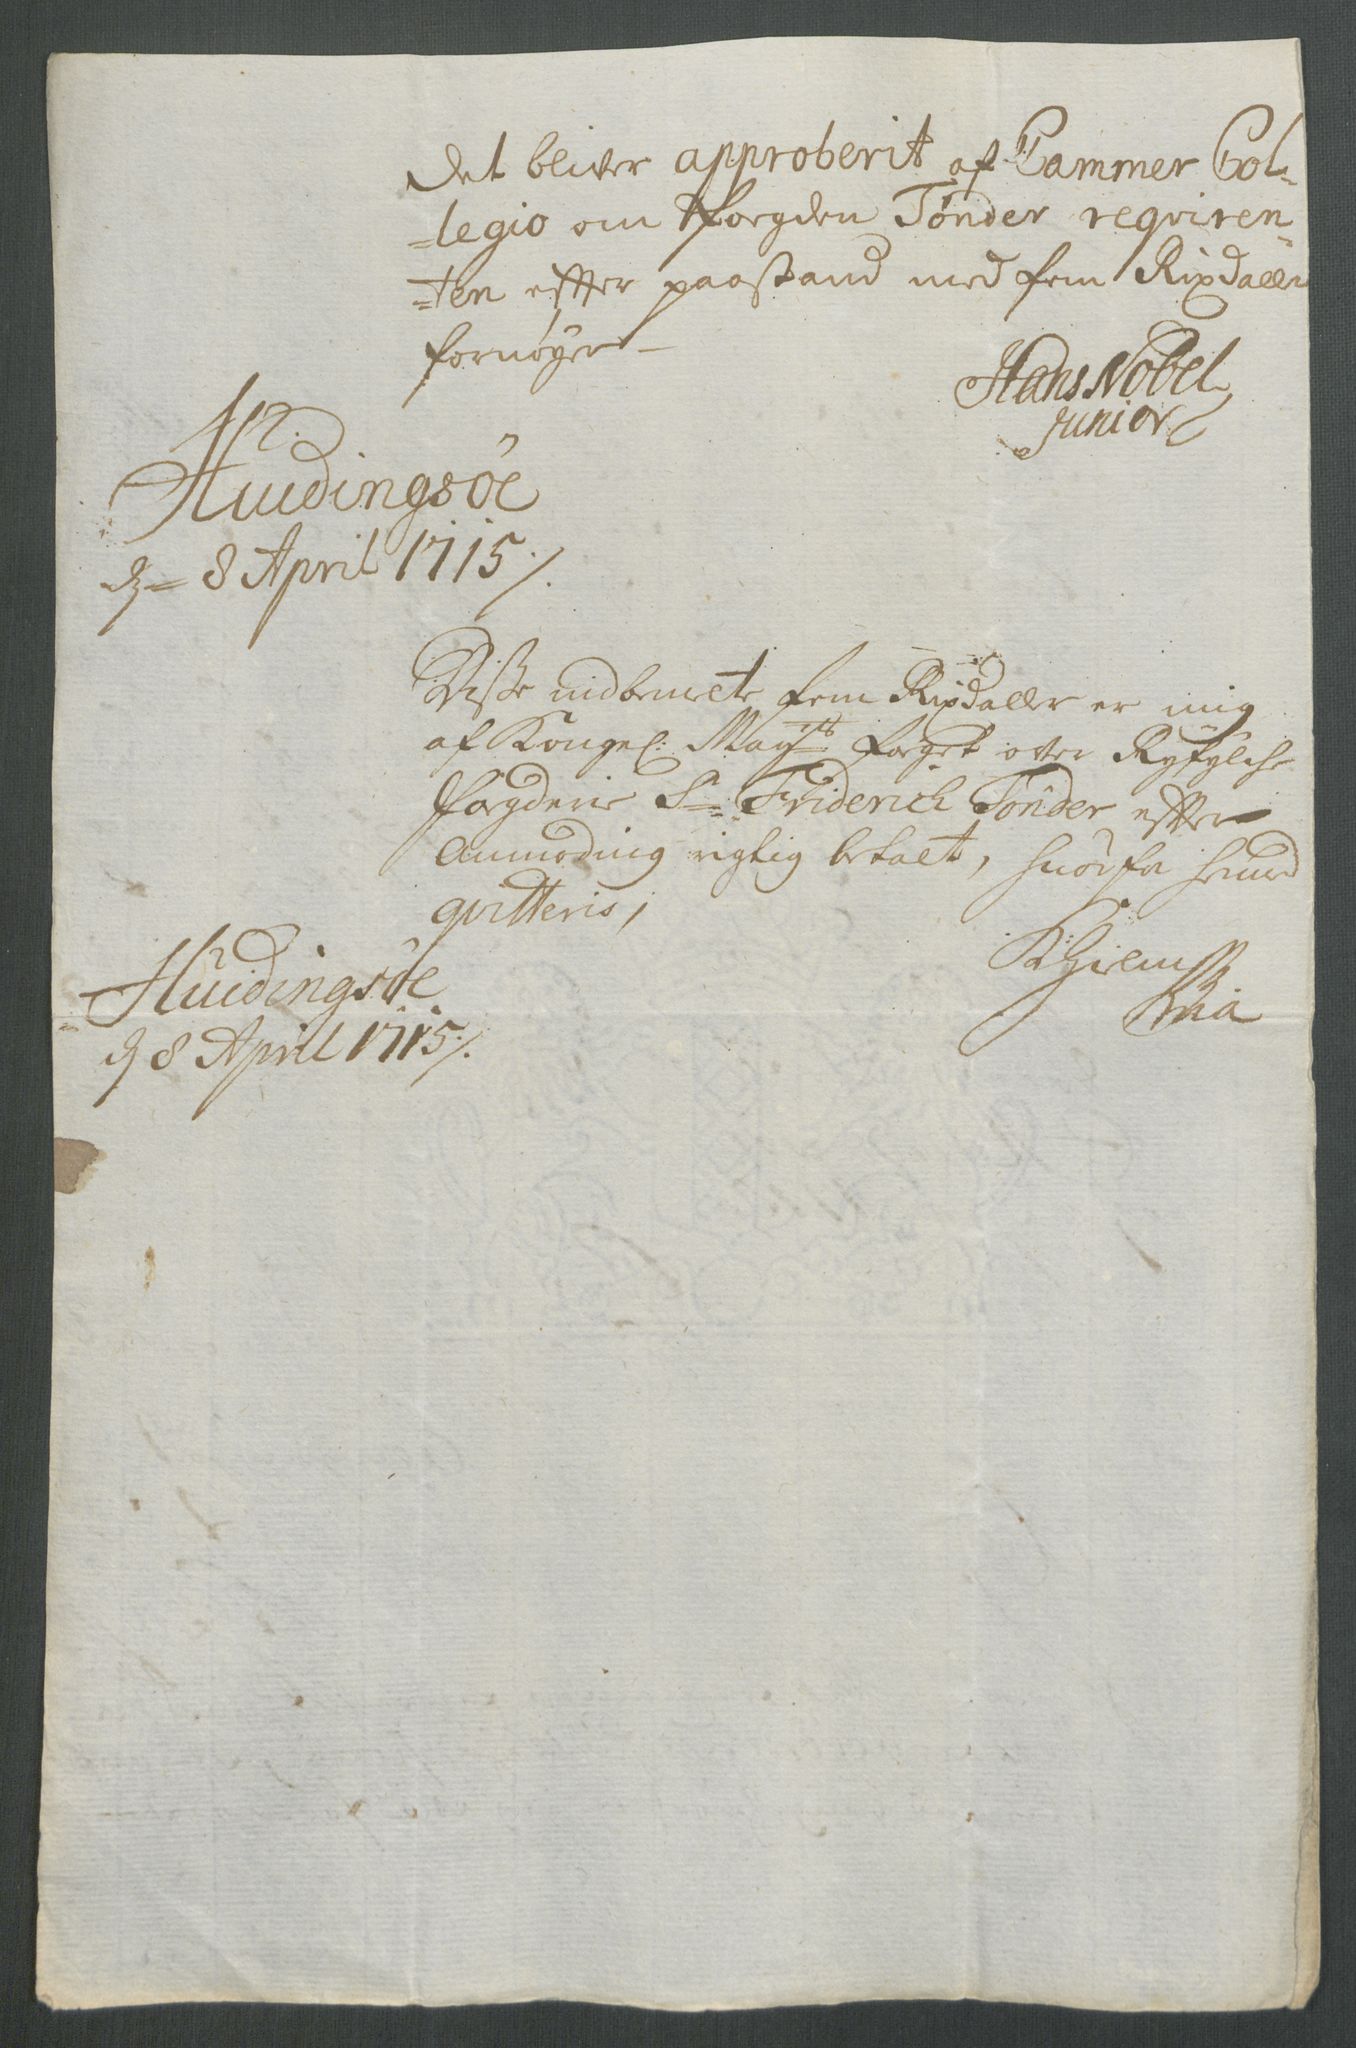 Det bliver approberit af Cammer Col¬
=legio om Fogden Tønder reqviren¬
=ten effter paastand med fem Rixdaller
fornøyer
Hans Nobel
Junior
Huidingsöe
d 8 April 1715 ./.
Disse indbemelte fem Rixdaller er mig
af Kongel: Mayts foget over Ryfylche
fogderie Sr Friderich Tønder effter
Anmoding rigtig betalt, hvorfor hermed
qvitteris,
Huidingsöe
d 8 April 1715 ./.